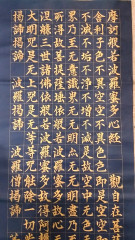 摩訶般若波羅蜜多心經 觀自在菩
舍利子色不異空空不異色色即是空空
不滅不垢不淨不增不減是故空中无色
界乃至无意識界无无明亦无无明盡乃
所得故菩提薩埵依般若波羅蜜多故
涅槃三世諸佛依般若波羅蜜多故得阿
大明咒是无上咒是无等等咒能除一切
揭諦揭諦 波羅揭諦 波羅僧揭諦